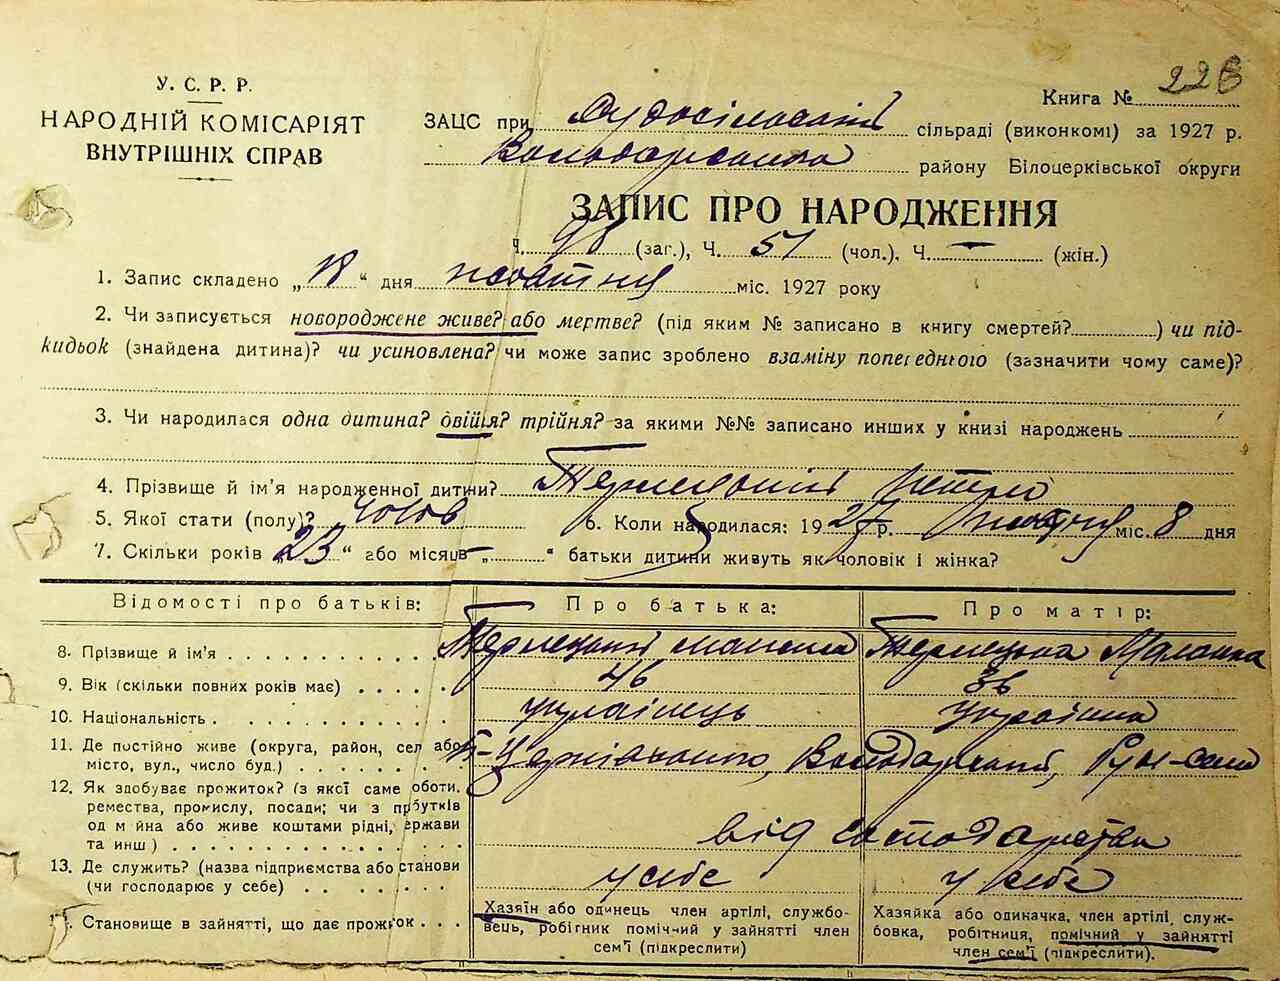 226
У. С. Р. Р.
НАРОДНІЙ КОМІСАРІЯТ
ВНУТРІШНІХ СПРАВ
Книга №
ЗАЦС при Рудосільській сільраді (виконкомі) за 1927 р.
Володарського району Білоцерківської округи
ЗАПИС ПРО НАРОДЖЕННЯ
Ч. 98 (заг.), Ч. 51 (чол.), Ч. — (жін.)
1. Запис складено „18“ дня жовтня міс. 1927 року
2. Чи записується новороджене живе? або мертве? (під яким № записано в книгу смертей? ) чи під-
кидьок (знайдена дитина)? чи усиновлена? чи може запис зроблено взаміну попереднього (зазначити чому саме)?
3. Чи народилася одна дитина? двійня? трійня? за якими №№ записано инших у книзі народжень
4. Прізвище й ім'я народженної дитини? Терлецький Петро
5. Якої стати (полу)? чолов 6. Коли народилася: 1927 р. жовтня міс. 8 дня
7. Скільки років „23“ або місяців „—“ батьки дитини живуть як чоловік і жінка?
Відомості про батьків: Про батька: Про матір:
8. Прізвище й ім'я Терлецький Терлецька Маланка
9. Вік (скільки повних років має) 46 36
10. Національність українець українка
11. Де постійно живе (округа, район, село або
місто, вул., число буд.) Б-Церківського, Володарський, Руд-село
12. Як здобуває прожиток? (з якої саме роботи,
ремества, промислу, посади; чи з прибутків
од майна або живе коштами рідні, держави
та инш) від господарства
13. Де служить? (назва підприємства або станови
(чи господарює у себе) у себе у себе
14. Становище в зайнятті, що дає прожиток
Хазяїн або одинець член артілі, службо-
вець, робігник помічний у зайнятті член
сем'ї (підкреслити)
Хазяйка або одиначка, член артілі, служ-
бовка, робітниця, помічний у зайнятті
член сем'ї (підкреслити).